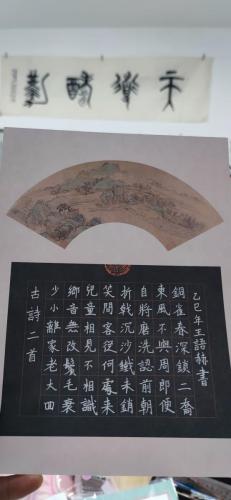 古詩二首
少小離家老大回
鄉音無改鬢毛衰
兒童相見不相識
笑問客從何處来
折戟沉沙鐵未銷
自將磨洗認前朝
東風不與周郎便
銅雀春深鎖二喬
乙巳年王語赫書